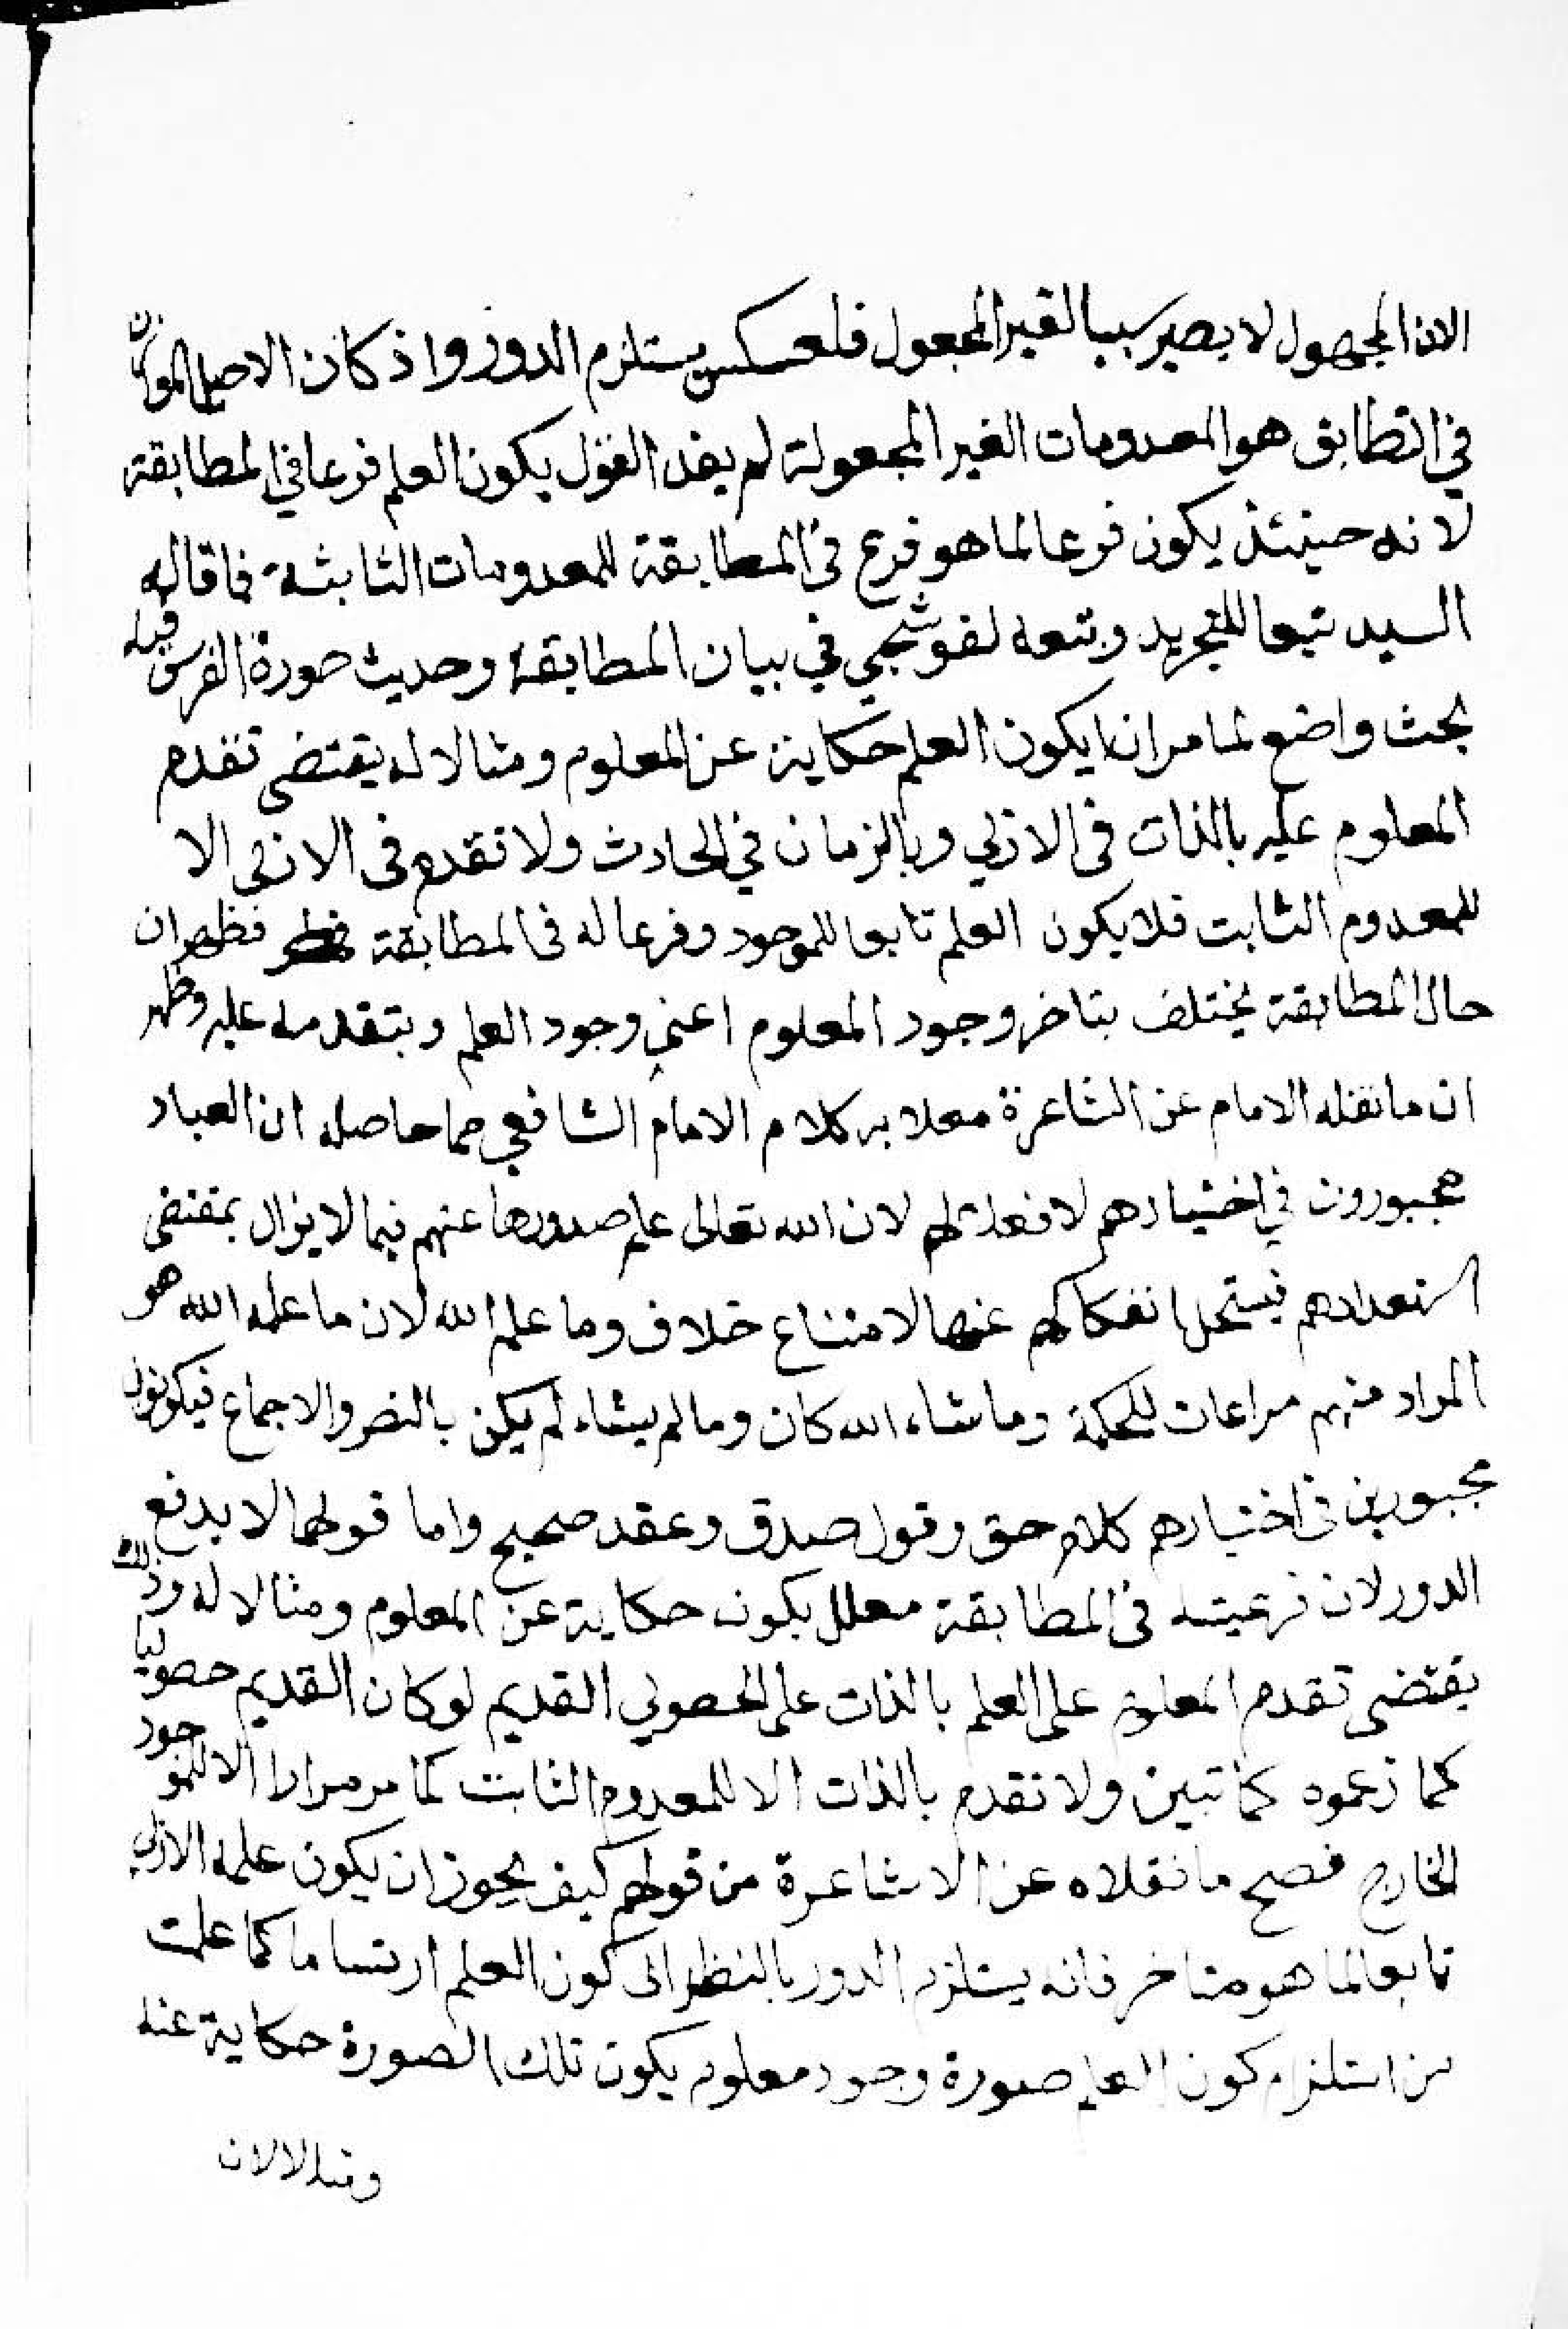 الاذا المجهول لا يصير سببا لغير المجعول فلعكس يستلزم الدور واذ كان الاصل الموازن
في التطابق هو المعدومات الغير المجعولة لم يفد القول يكون العلم فرعا في المطابقة
لانه حينئذ يكون فرعا لما هو فرع في المطابقة للمعدومات الثابثة فما قاله
السيد تبعا للتجريد وتبعه لقوشجي في بيان المطابقة وحديث صورة الفرس فيه
بحث واضع لما مر ان يكون العلم حكاية عن المعلوم ومثالا له يقتضى تقدم
المعلوم عليه بالذات فى الازلي وبالزمان في الحادث ولا تقدم فى الازلي الا
للمعدوم الثابت فلا يكون العلم تابعا للموجود وفرعا له فى المطابقة فظهر ان
حال المطابقة يختلف بتاخر وجود المعلوم اعني وجود العلم وبتقدمه عليه وظهر
ان ما نقله الامام عن الشاعرة معلا به كلام الامام الشافعي مما حاصله ان العباد
مجبورون في اختيارهم لا فعد لهم لان الله تعالى علم صدورها عنهم فيما لا يزال بمقتضى
استعدادهم فيستحل انفكاكهم عنها لامتناع خلاف وما علم الله لان ما علمه الله هو
المراد منهم مراعات للحكمة وما شاء الله كان وما لم يشاء لم يكن بالنص والاجماع فيكونون
مجبورين فى اختيارهم كلام حق وقول صدق وعقد صحيح واما قولهما لا يدفع
الدور لان فرعيته فى المطابقة معلل بكون حكاية عن المعلوم ومثالا له وذلك
يقتضى تقدم المعلوم على العلم بالذات على الحصولي القديم لو كان القديم حصوليا
كما زعموه كما تبين ولا تقدم بالذات الا للمعدوم الثابت كما مر مرارا الا للموجود
الخارج فصح ما نقلاه عن الاشاعرة من قولهم كيف يجوز ان يكون علمه الازلي
تابعا لما هو متاخر فانه يستلزم الدور بالنظر الى كون العلم ارتساما كما علمت
من استلزام كون العلم صورة وجود معلوم يكون تلك الصورة حكاية عنه